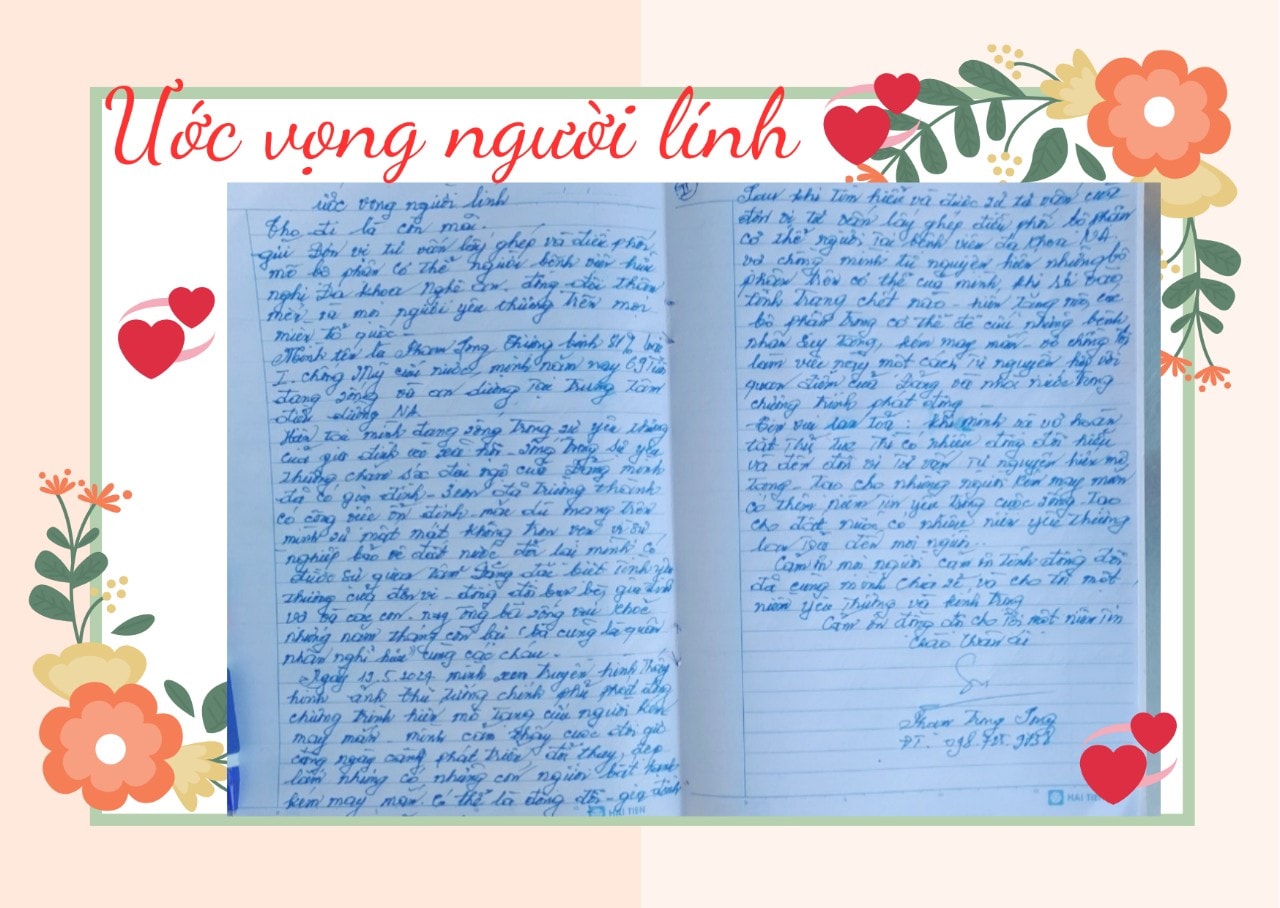 Ước vọng người lính
ước vọng người lính
Cho đi là còn mãi.
gửi Đơn vị tư vấn lấy ghép và điều phối
mô bộ phận cơ thể người bệnh viện hữu
nghị Đa khoa Nghệ An. đồng đội thân
mến và mọi người yêu thương trên mọi
miền tổ quốc.
Mình tên là Phạm Thương binh
I. chống Mỹ cứu nước, mình năm nay 69 Tuổi
đang sống và an dưỡng tại Trung Tâm
điều dưỡng NA
Hiện tại mình đang sống trong sự yêu thương
của gia đình sống trong sự yêu
thương chăm sóc đãi ngộ của Đảng mình
đã có gia đình - 3 em đã trưởng thành
có công việc ổn định mặc dù mang trên
mình sự mất mát không trọn vẹn vì sự
nghiệp bảo vệ đất nước đổi lại mình có
được sự quan tâm Đảng đặc biệt tình yêu
thương của đơn vị - đồng đội bạn bè, gia đình
vợ và các con. nay ông bà sống vui khỏe
những năm tháng còn lại (bà cũng là quân
nhân nghỉ hưu) cùng các cháu.
Ngày 19.5.2024 mình xem truyền hình Thấy
hình ảnh thủ tướng chính phủ phát động
chương trình hiến mô Tạng cứu người kém
may mắn. mình cảm thấy cuộc đời giờ
càng ngày càng phát triển, đổi thay, đẹp
lắm nhưng có những con người bất hạnh
kém may mắn có thể là đồng đội - gia đình
HẢI TIẾN
II
Sau khi tìm hiểu và được sự tư vấn của
đơn vị tư vấn lấy ghép điều phối bộ phận
cơ thể người Tại bệnh viện đa khoa NA
vợ chồng mình tự nguyện hiến những bộ
phận trên cơ thể của mình, khi
tình trạng chết não - hiến tặng mô, các
bộ phận trong cơ thể để cứu những bệnh
nhân suy tạng, kém may mắn vợ chồng tôi
làm việc này một cách Tự nguyện với
quan điểm của Đảng và nhà nước trong
chương trình phát động
lan tỏa: khi mình và vợ hoàn
tất Thủ tục Thì có nhiều đồng đội hiểu
và đến đơn vị Tư vấn Tự nguyện hiến mô,
tạng - tạo cho những người kém may mắn
có thêm niềm tin yêu trong cuộc sống Tạo
cho đất nước có nhiều niềm yêu thương
lan tỏa đến mọi người.
Cảm ơn mọi người cảm ơn tình đồng đội
đã cùng mình chia sẻ và cho tôi một
niềm yêu thương và kính trọng
Cảm ơn đồng đội cho Tôi một niềm Tin
Chào thân ái
Phạm Trọng
ĐT.
HẢI TIẾN